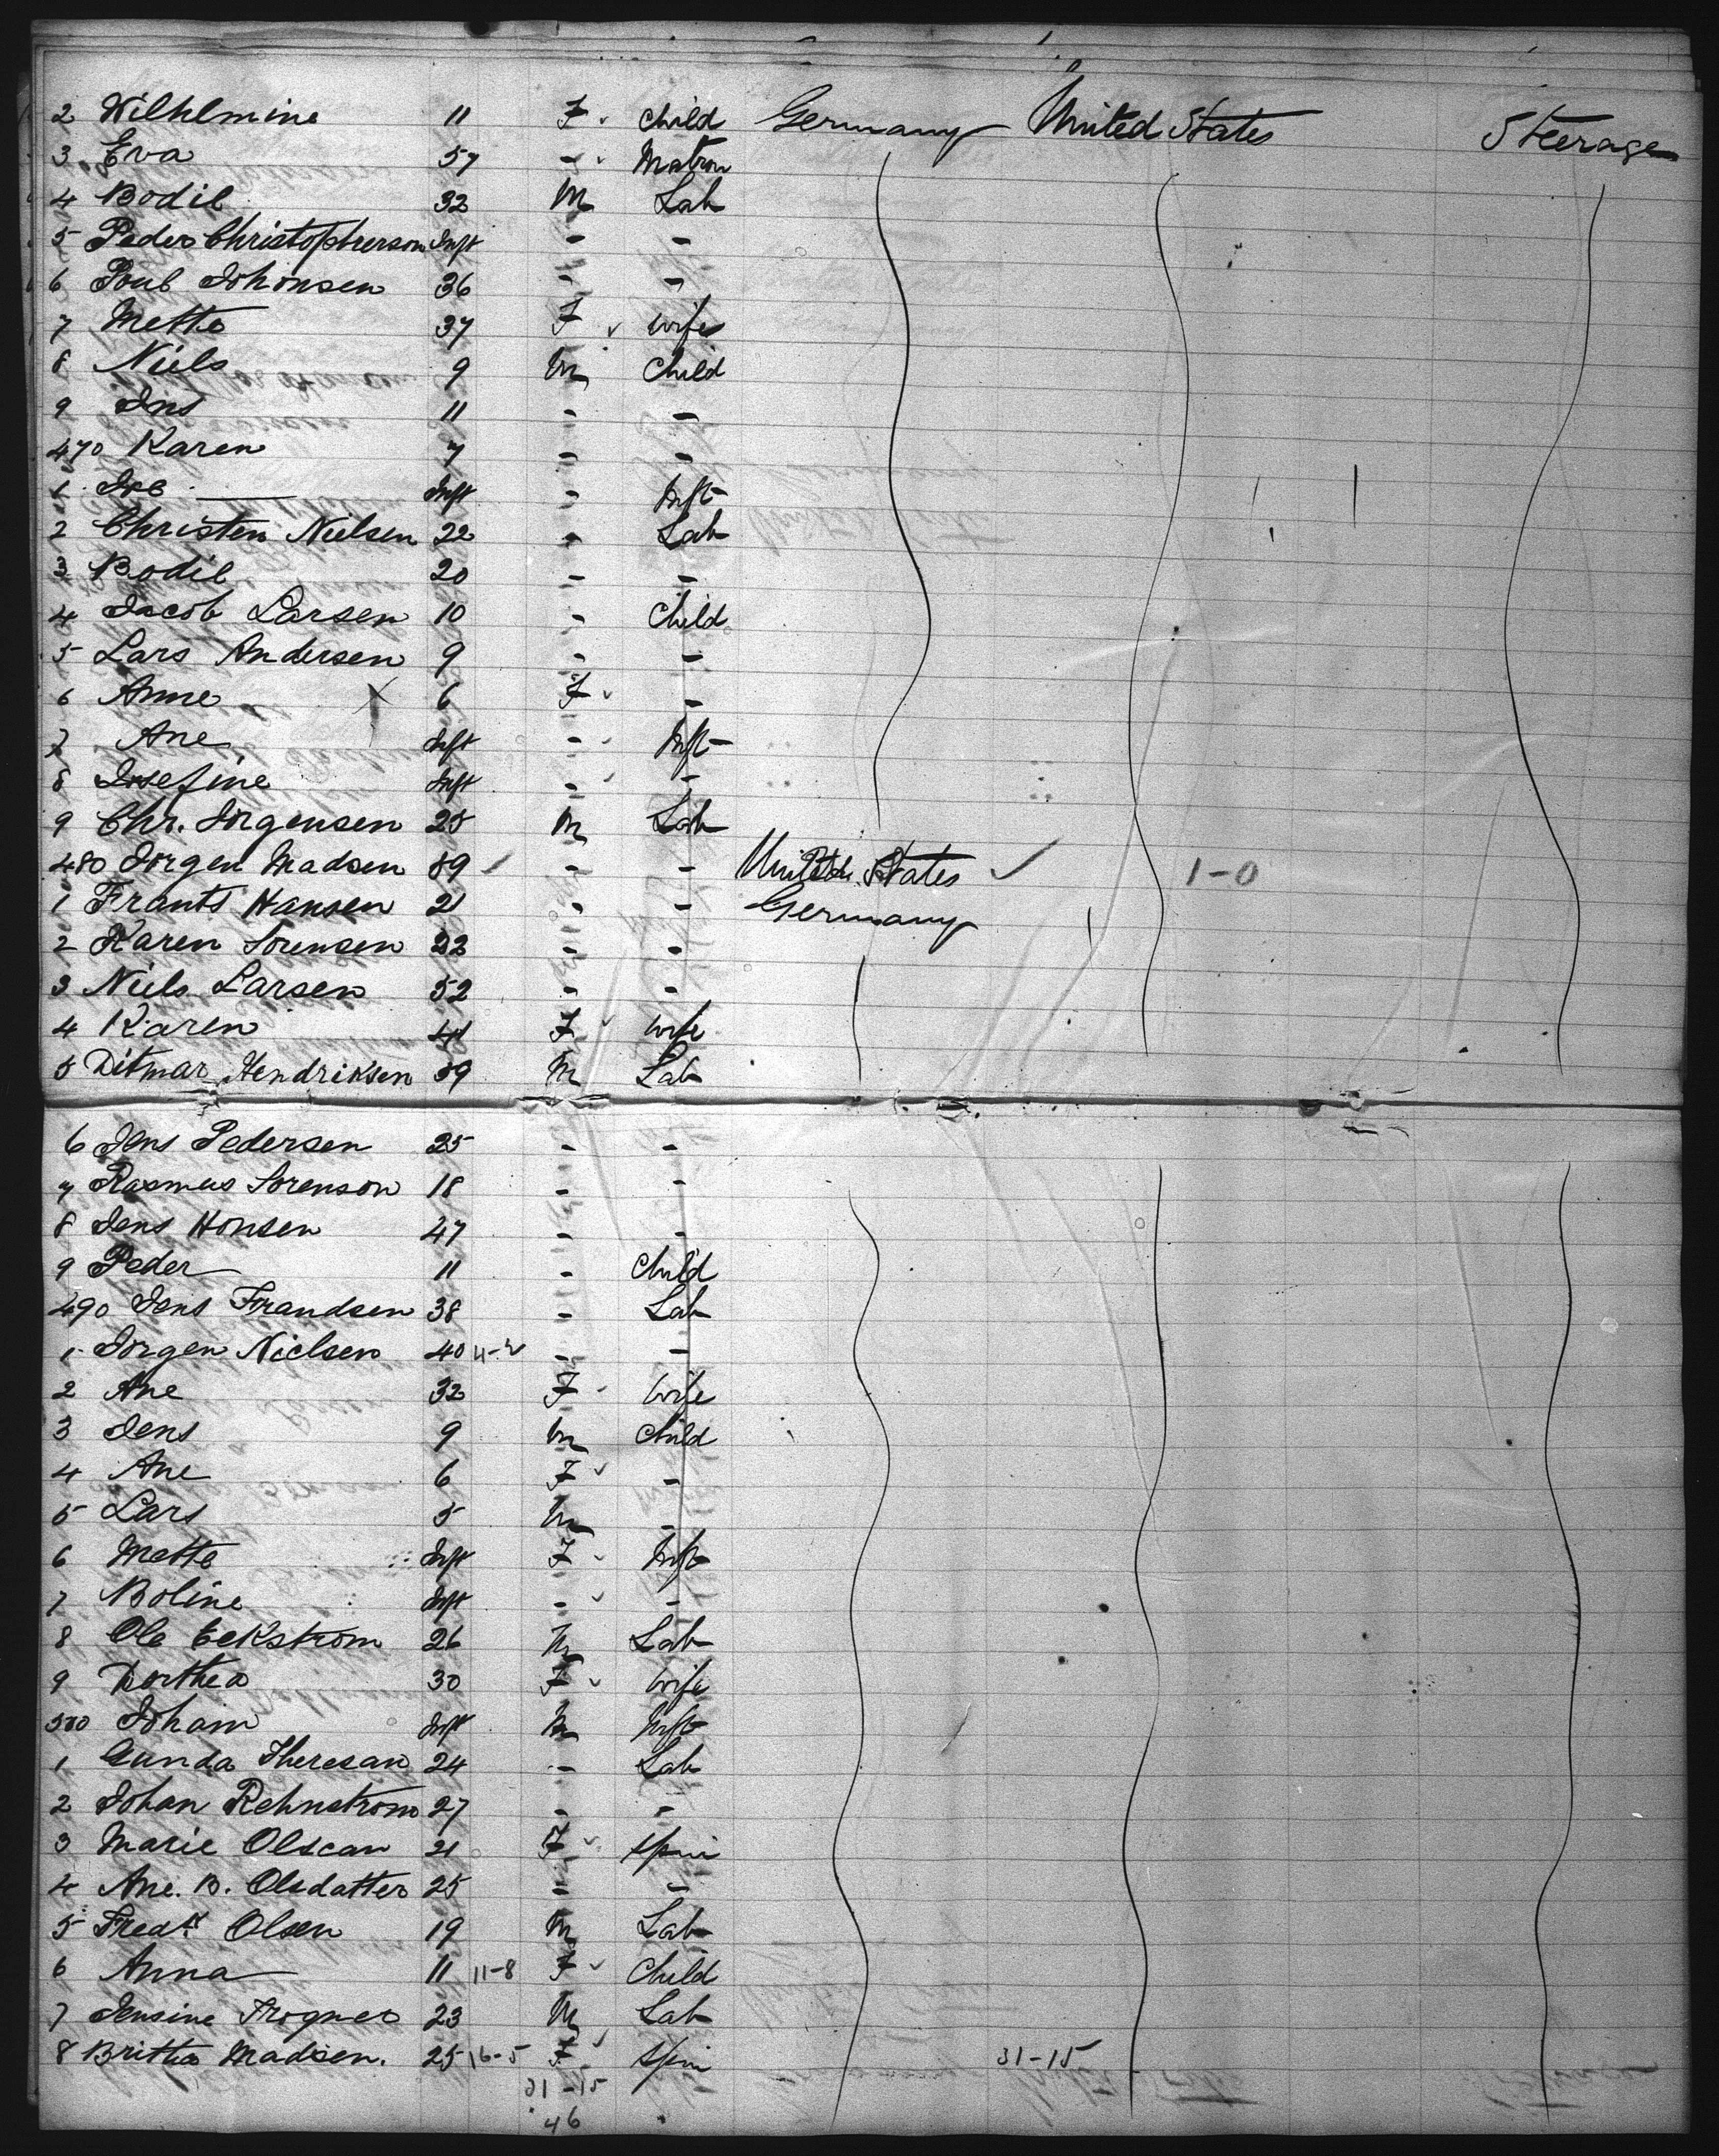 2 Wilhlmine 11 F child Germany United States Steerage
3 Eva 57 - Matron
4 Bodil 32 M Lab
5 Peder Christopherson Inft - -
6 Poul Johonsen 36 - -
7 Mette 37 F wife
8 Niels 9 M Child
9 Jns 11 - -
470 Karen 7 - -
1 Inft - Inft
2 Christen Nielsen 22 - Lab
3 Bodil 20 - -
4 Jacob Larsen 10 - Child
5 Lars Andersen 9 - -
6 Anne X 6 F -
7 Ane Inft - Inft
8 Josefine Inft - -
9 Chr. Jorgensen 25 M Lab
480 Jorgen Madsen 89 - - United States 1-0
1 Frants Hansen 21 - - Germany
2 Karen Sorensen 22 - -
3 Niels Larsen 52 - -
4 Karen 44 F wife
5 Ditmar Hendriksen 39 M Lab
6 Jens Pedersen 25 - -
7 Rasmus Sorenson 18 - -
8 Jens Honsen 47 - -
9 Peder 11 - Child
490 Jens Frandsen 38 - Lab
1 Jorgen Nielsen 40 11-2 - -
2 Ane 32 F wife
3 Jens 9 M Child
4 Ane 6 F -
5 Lars 5 M -
6 Mette Inft F Inft
7 Boline Inft - -
8 Ole Eckstrom 26 M Lab
9 Dorthea 30 F wife
500 Johann Inft M Inft
1 Gunda Thereson 24 - Lab
2 Johan Rehnstrom 27 - -
3 Marie Olscan 21 F Spin
4 Ane. B. Olsdatter 25 - -
5 Fredk Olsen 19 M Lab
6 Anna 11 11-8 F Child
7 Jensine Trogner 23 M Lab
8 Britha Madsen. 25 16-5 F Spin 31-15
31-15
46